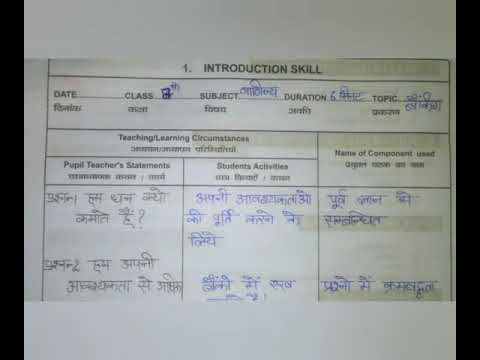 1. INTRODUCTION SKILL
DATE CLASS 8th SUBJECT वाणिज्य DURATION 6 मिनट TOPIC बैंकिंग
दिनांक कक्षा विषय अवधि प्रकरण
Teaching/Learning Circumstances
अध्यापन/अध्ययन परिस्थितियाँ
Name of Component used
प्रयुक्त घटक का नाम
Pupil Teacher's Statements
छात्राध्यापक कथन / कार्य
Students Activities
छात्र क्रियाएँ / कथन
प्रश्न1 हम धन क्यों
कमाते हैं?
अपनी आवश्यकताओं
की पूर्ति करने के
लिये
पूर्व ज्ञान से
सम्बन्धित
प्रश्न2 हम अपनी
आवश्यकता से अधिक
बैंकों में रख
प्रश्नों में क्रमबद्धता